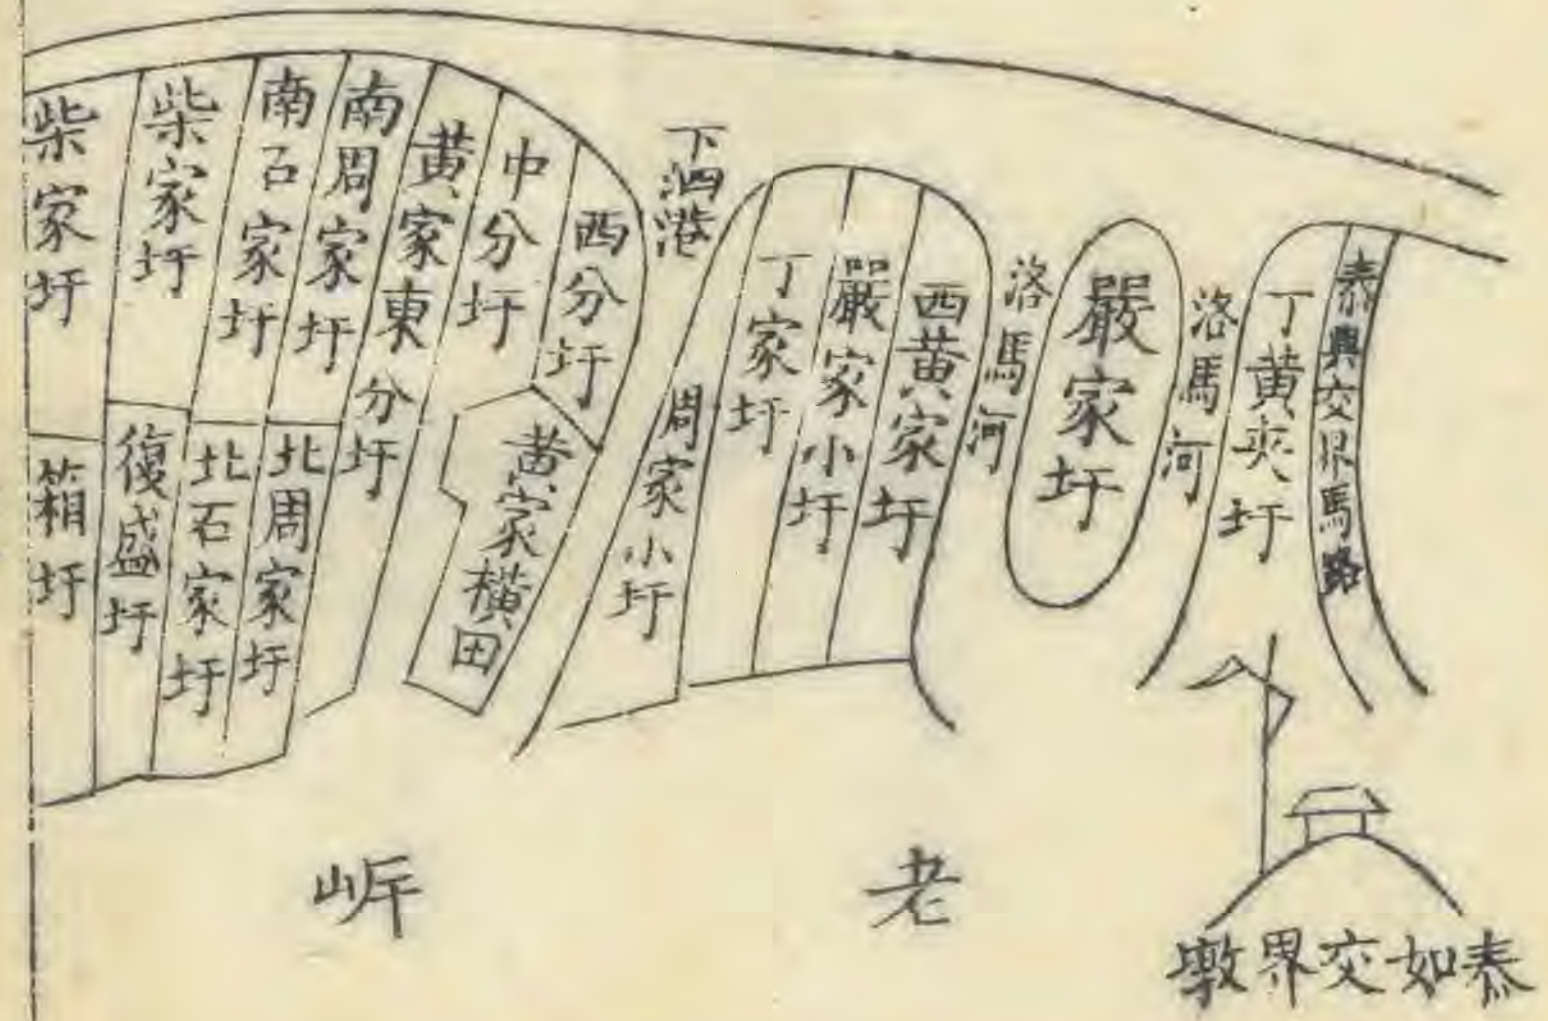 泰興交界馬路
丁黄夾圩
洛馬河
嚴家圩
洛馬河
西黄家圩
嚴家小圩
丁家圩
周家小圩
下泗港
西分圩
中分圩
黄家横田
黄家東分圩
南周家圩
北周家圩
南石家圩
北石家圩
柴家圩
復盛圩
柴家圩
箱圩
泰如交界墩
老
岸